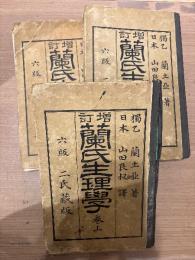 增訂
蘭氏生
增訂
蘭氏生
獨乙 蘭土亞 著
日本 山田良叔
六版
增訂
蘭氏生理學 卷上
獨乙 蘭土亞 著
日本 山田良叔 譯
六版 二氏藏版